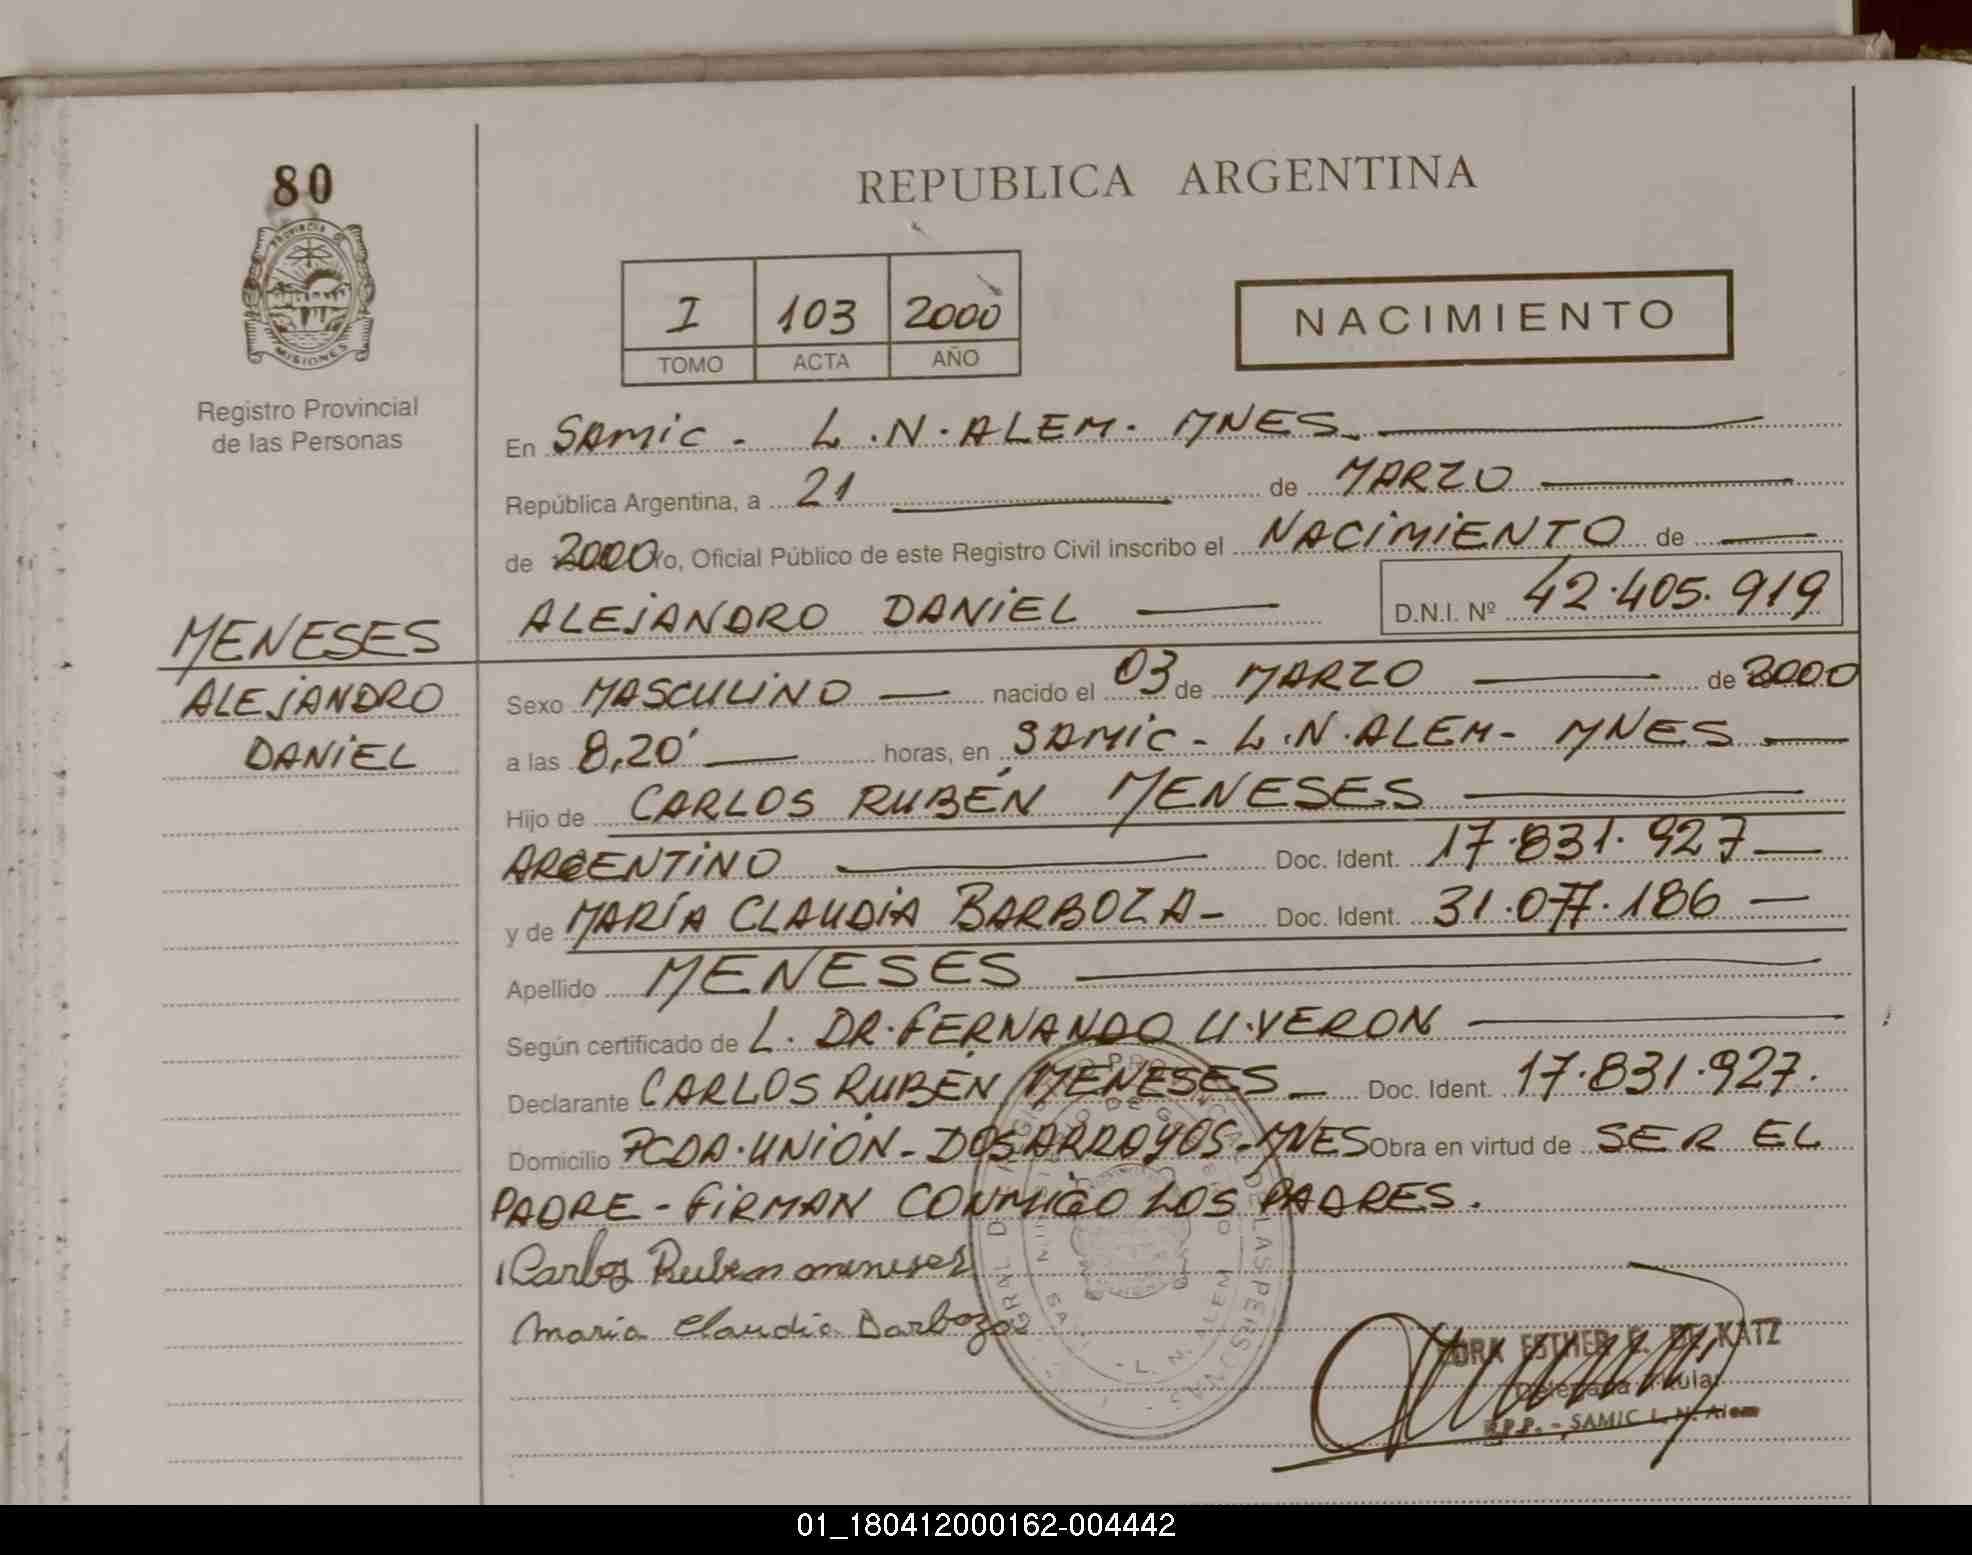 80
PROVINCIA DE
MISIONES
Registro Provincial
de las Personas
MENESES
ALEJANDRO
DANIEL
REPUBLICA ARGENTINA
I 103 2000
TOMO ACTA AÑO
NACIMIENTO
En SAMIC - L.N.ALEM. MNES.
República Argentina, a 21 de MARZO
de 2000 Yo, Oficial Público de este Registro Civil inscribo el NACIMIENTO de
ALEJANDRO DANIEL D.N.I. Nº 42.405.919
Sexo MASCULINO nacido el 03 de MARZO de 2000
a las 8,20' horas, en SAMIC - L.N.ALEM - MNES
Hijo de CARLOS RUBÉN MENESES
ARGENTINO Doc. Ident. 17.831.927
y de MARÍA CLAUDIA BARBOZA - Doc. Ident. 31.077.186
Apellido MENESES
Según certificado de L. DR. FERNANDO U. VERON
Declarante CARLOS RUBÉN MENESES Doc. Ident. 17.831.927.
Domicilio PCDA. UNIÓN - DOS ARROYOS - MNES Obra en virtud de SER EL
PADRE - FIRMAN CONMIGO LOS PADRES.
Carlos Ruben meneses
Maria Claudia Barboza
ESTHER E. DE KATZ
Delegada Titular
R.P.P. - SAMIC L. N. Alem
01_180412000162-004442